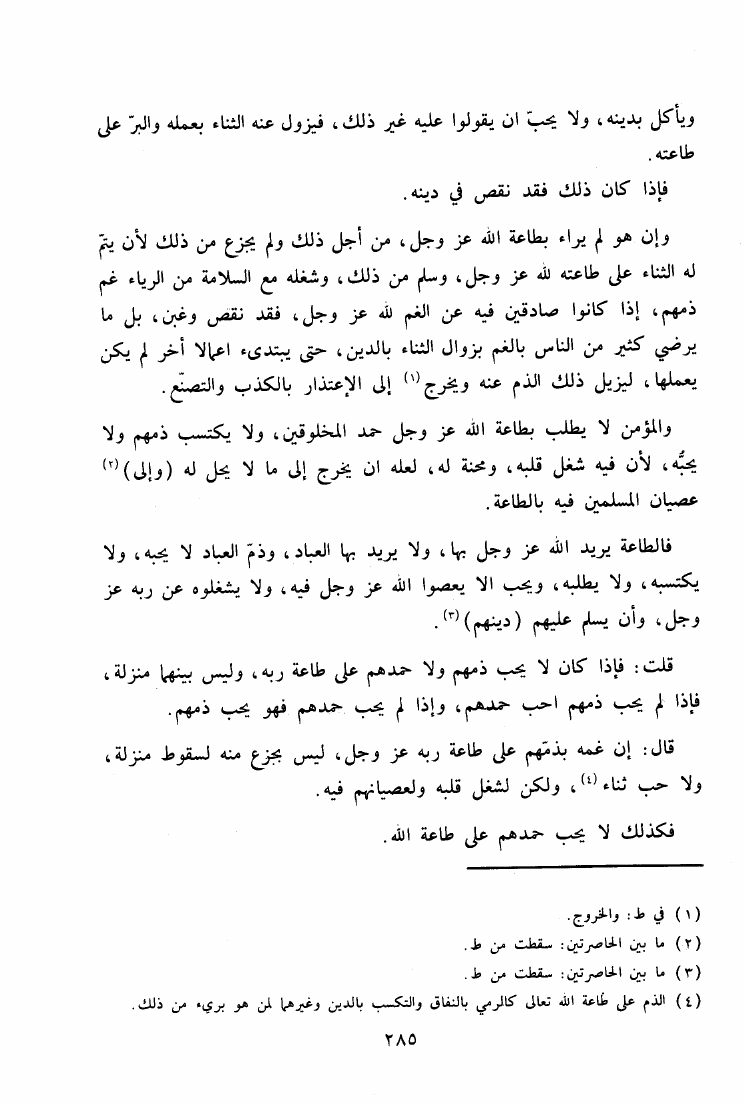 ويأكل بدينه، ولا يحبّ ان يقولوا عليه غير ذلك، فيزول عنه الثناء بعمله والبرّ على
طاعته.
فإذا كان ذلك فقد نقص في دينه.
وإن هو لم يراء بطاعة الله عز وجل، من أجل ذلك ولم يجزع من ذلك لأن يتمّ
له الثناء على طاعته لله عز وجل، وسلم من ذلك، وشغله مع السلامة من الرياء غم
ذمهم، إذا كانوا صادقين فيه عن الغم لله عز وجل، فقد نقص وغبن، بل ما
يرضي كثير من الناس بالغم بزوال الثناء بالدين، حتى يبتدىء اعمالا أخر لم يكن
يعملها، ليزيل ذلك الذم عنه ويخرج(١) إلى الإعتذار بالكذب والتصنّع.
والمؤمن لا يطلب بطاعة الله عز وجل حمد المخلوقين، ولا يكتسب ذمهم ولا
يحبُّه، لأن فيه شغل قلبه، ومحنة له، لعله ان يخرج إلى ما لا يحل له (وإلى)(٢)
عصيان المسلمين فيه بالطاعة.
فالطاعة يريد الله عز وجل بها، ولا يريد بها العباد، وذمّ العباد لا يحبه، ولا
يكتسبه، ولا يطلبه، ويحب الا يعصوا الله عز وجل فيه، ولا يشغلوه عن ربه عز
وجل، وأن يسلم عليهم (دينهم)(٣).
قلت: فإذا كان لا يحب ذمهم ولا حمدهم على طاعة ربه، وليس بينهما منزلة،
فإذا لم يحب ذمهم احب حمدهم، وإذا لم يحب حمدهم فهو يحب ذمهم.
قال: إن غمه بذمّهم على طاعة ربه عز وجل، ليس بجزع منه لسقوط منزلة،
ولا حب ثناء(٤)، ولكن لشغل قلبه ولعصيانهم فيه.
فكذلك لا يحب حمدهم على طاعة الله.
(١) في ط: والخروج.
(٢) ما بين الحاصرتين: سقطت من ط.
(٣) ما بين الحاصرتين: سقطت من ط.
(٤) الذم على طاعة الله تعالى كالرمي بالنفاق والتكسب بالدين وغيرهما لمن هو بريء من ذلك.
٢٨٥